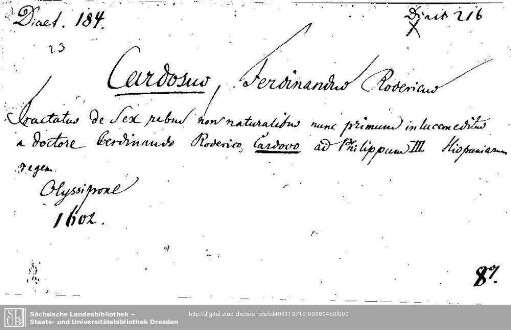 Diaet. 184.
Diaet 216
23
Cardosus, Ferdinandus Rodericus
Tractatus de Sex rebus non naturalibus nunc primum in lucem editus
a doctore Ferdinando Roderico, Cardoso ad Philippum III Hispaniarum
regem.
Olyssipone
1602.
8°.
Sächsische Landesbibliothek –
Staats- und Universitätsbibliothek Dresden